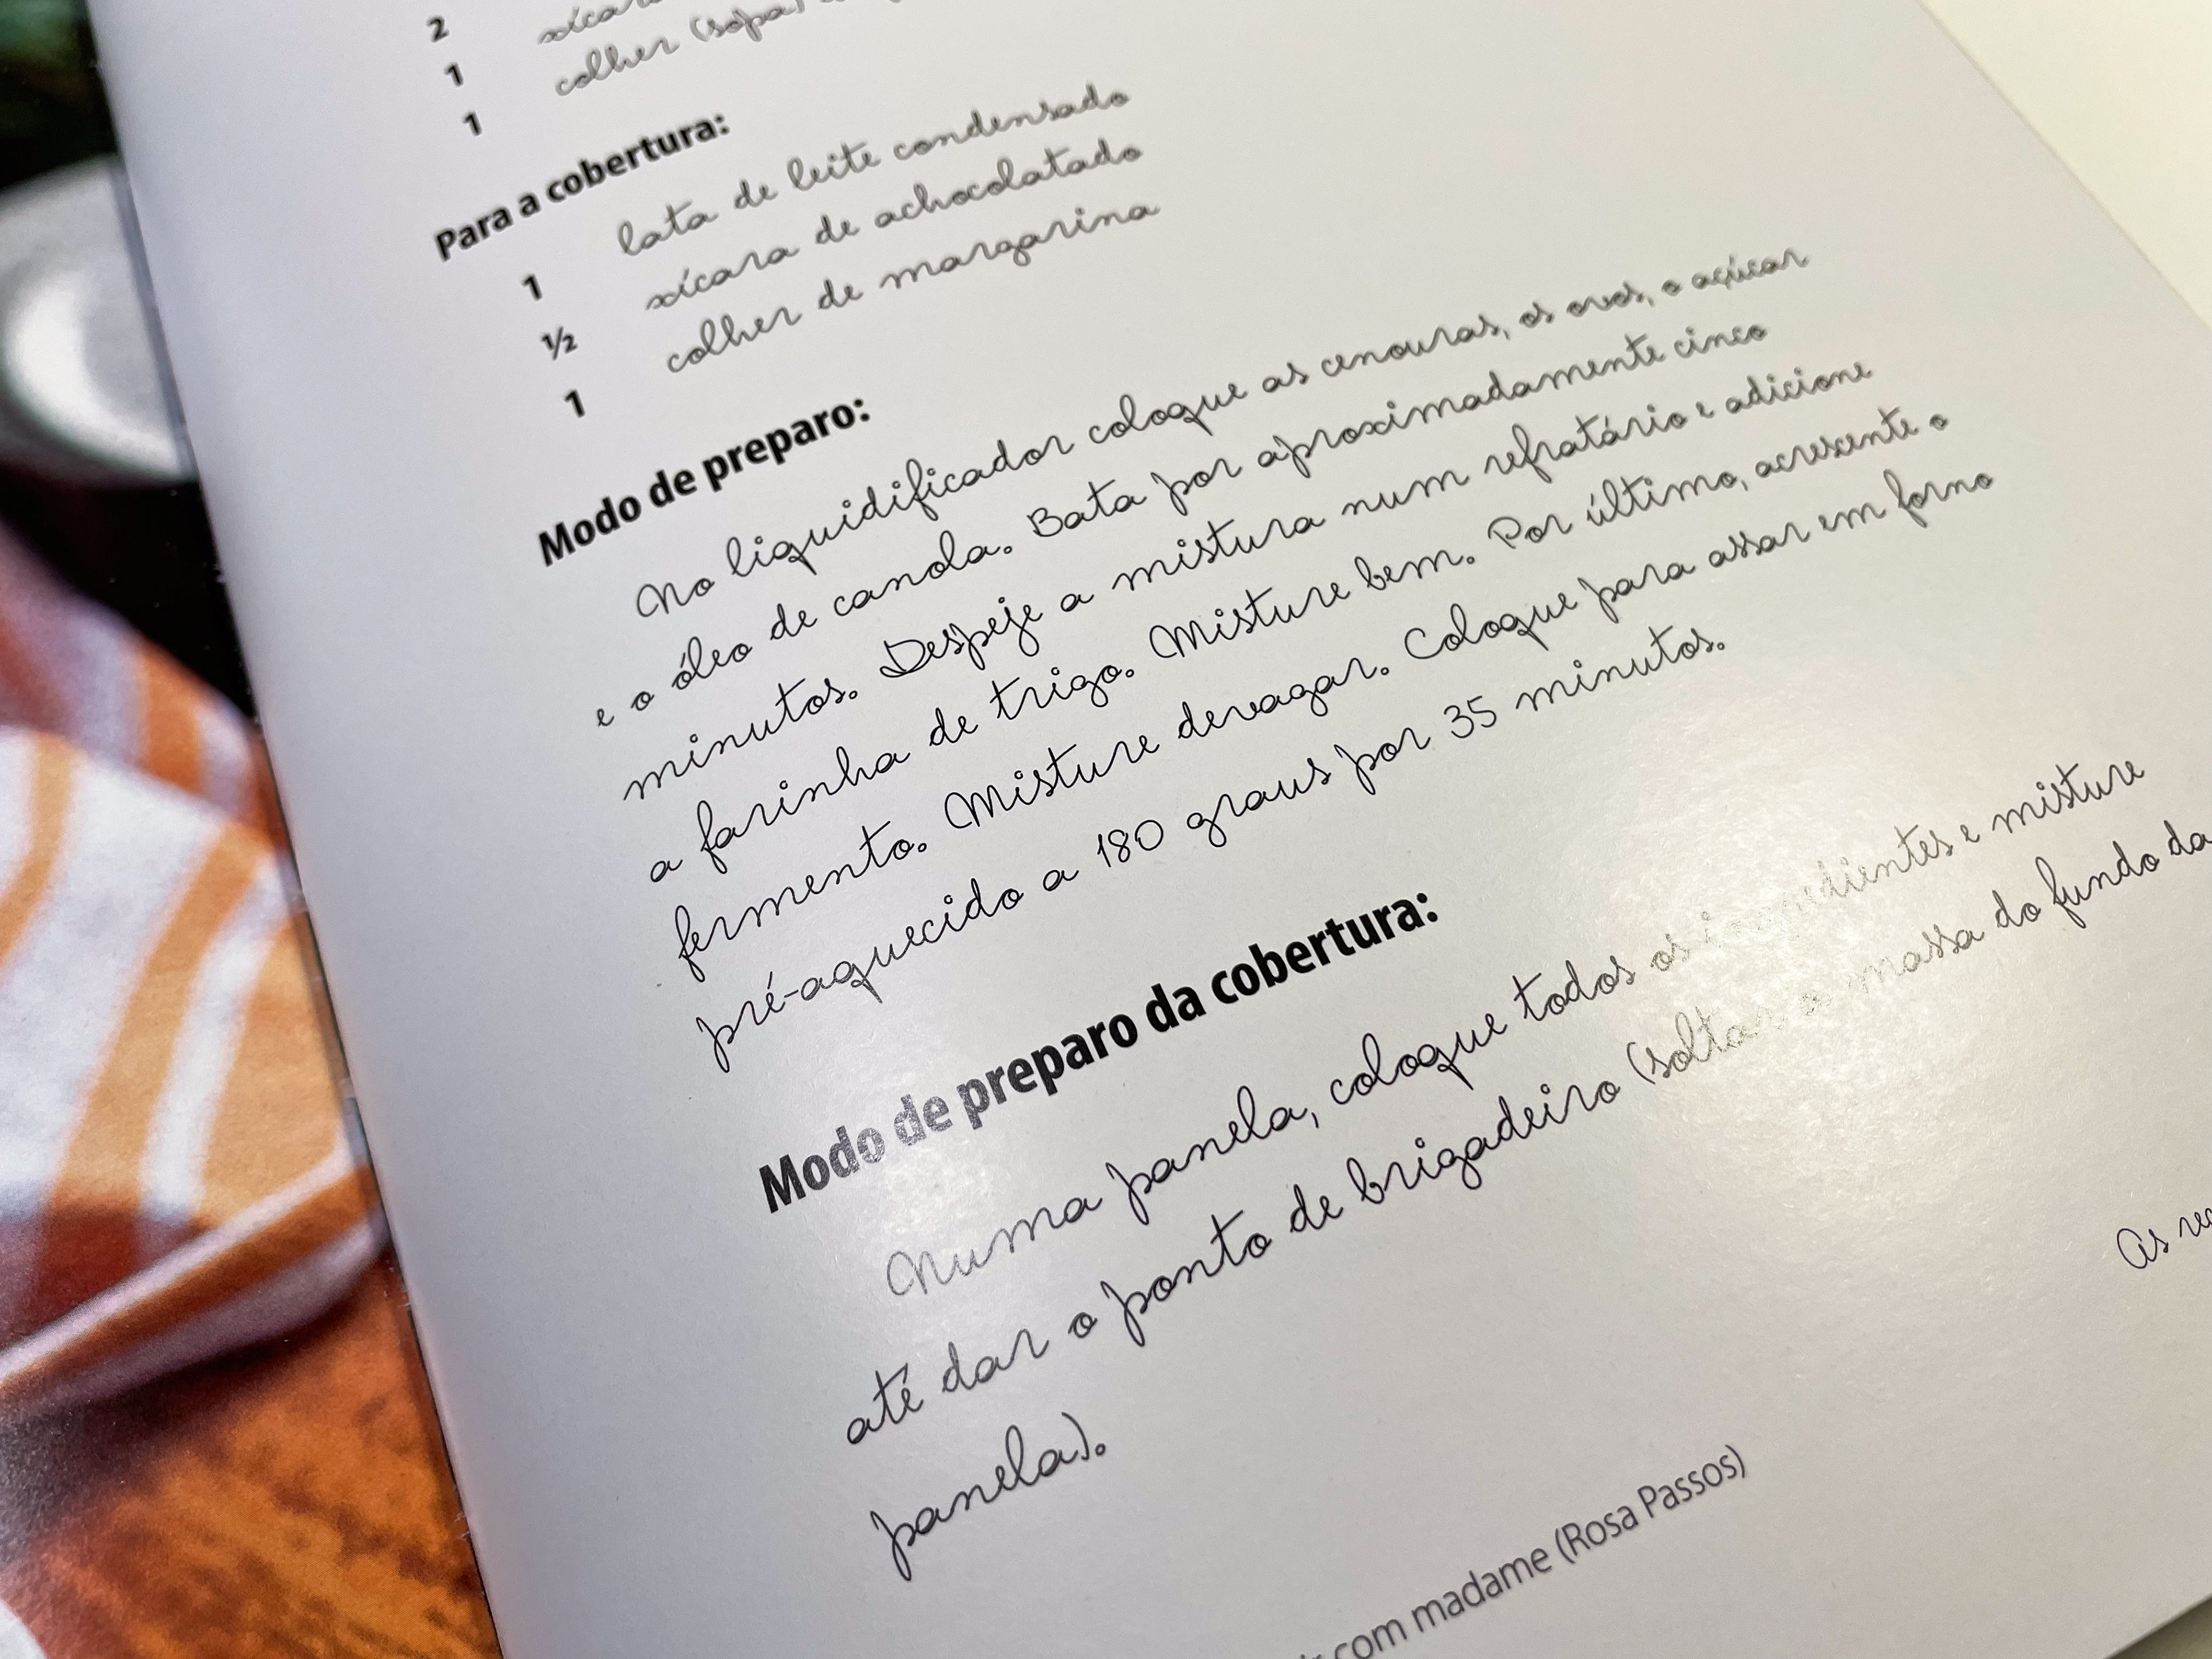 2
1 colher (sopa)
1
Para a cobertura:
1 lata de leite condensado
½ xícara de achocolatado
1 colher de margarina
Modo de preparo:
No liquidificador coloque as cenouras, os ovos, o açúcar
e o óleo de canola. Bata por aproximadamente cinco
minutos. Despeje a mistura num refratário e adicione
a farinha de trigo. Misture bem. Por último, acrescente o
fermento. Misture devagar. Coloque para assar em forno
pré-aquecido a 180 graus por 35 minutos.
Modo de preparo da cobertura:
Numa panela, coloque todos os ingredientes e misture
até dar o ponto de brigadeiro (soltar a massa do fundo da
panela).
As
com madame (Rosa Passos)